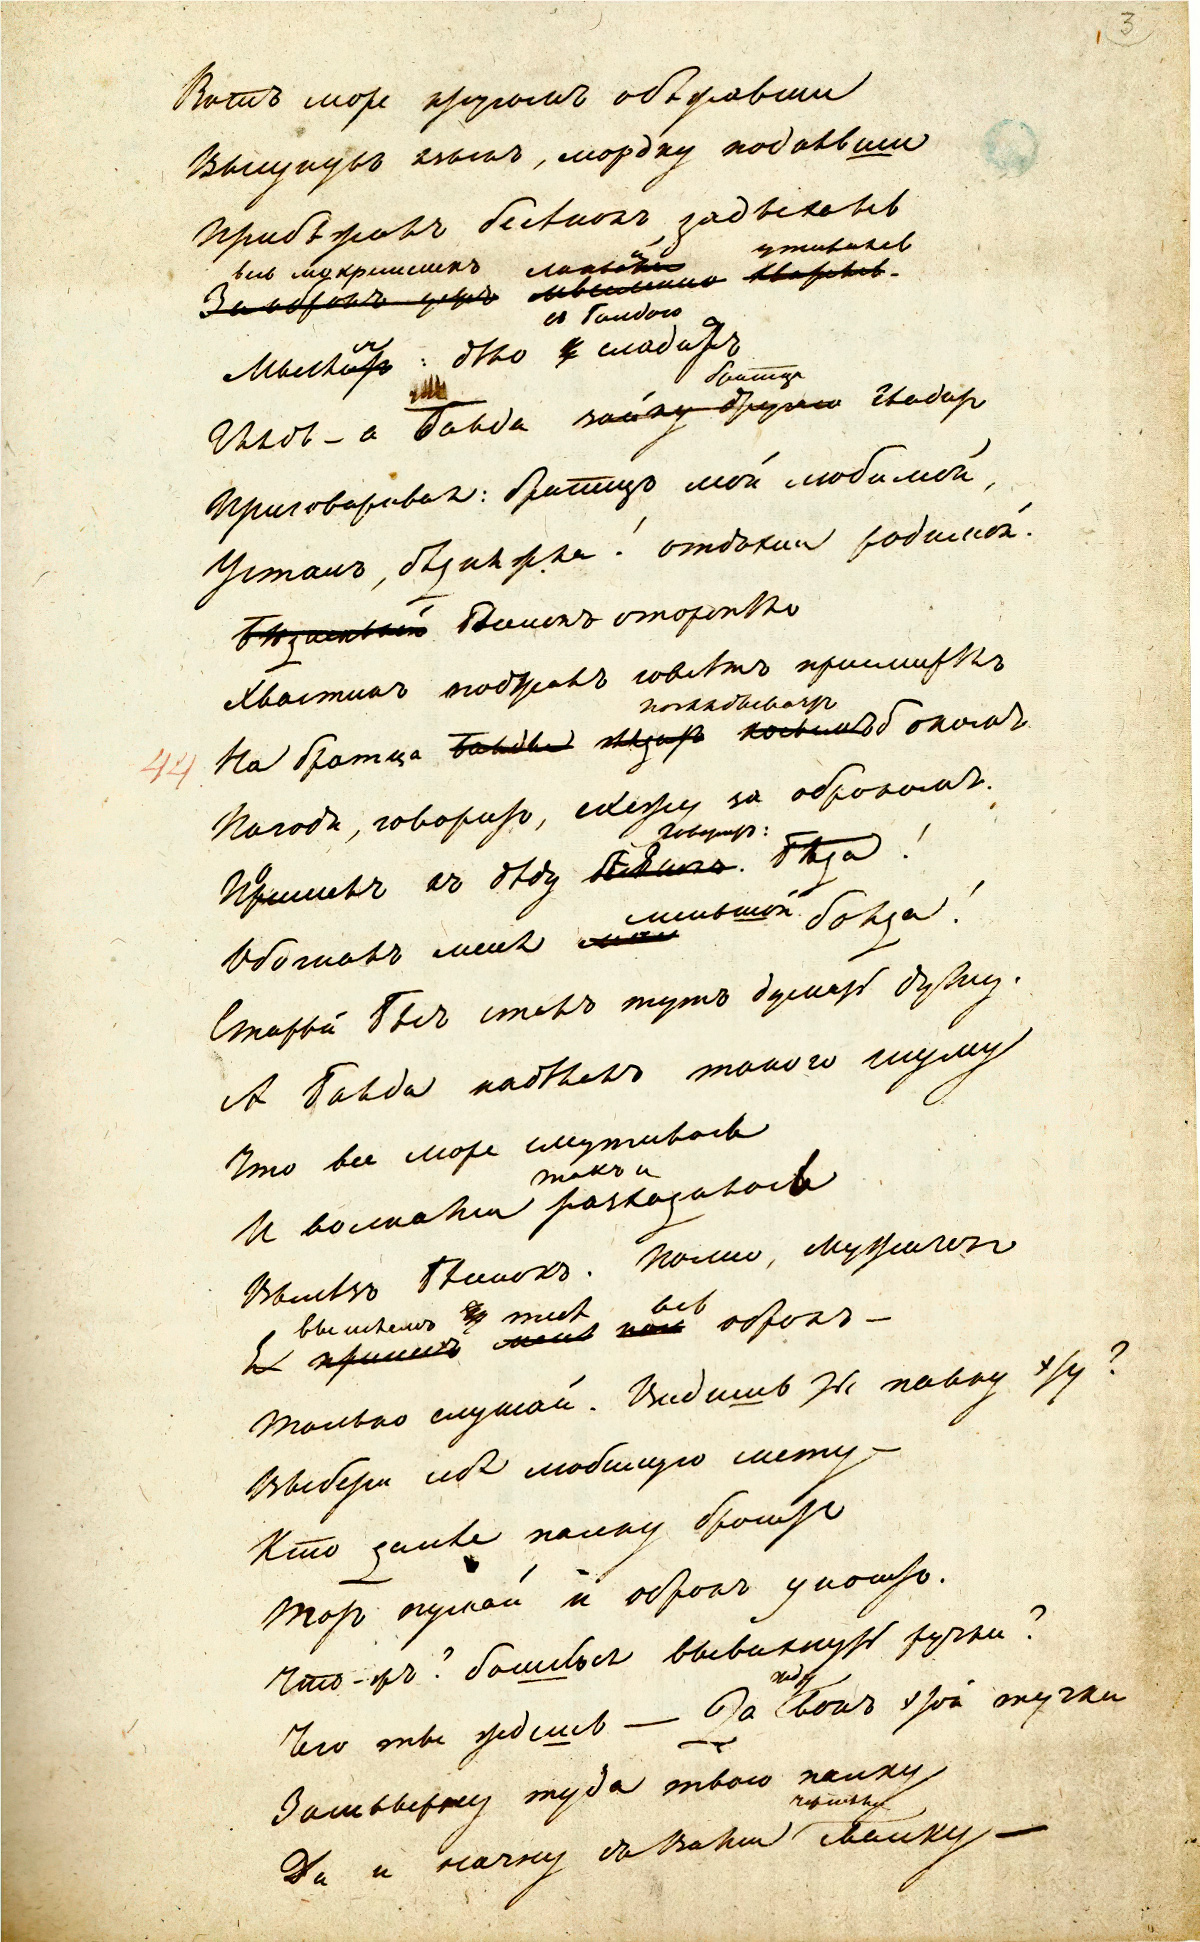 3
Вотъ море кругомъ обѣжавши
Высунувъ языкъ, мордку поднявши
Прибѣжалъ бесёнокъ задыхаясь
весь мокрешенекъ лапкой утираясь
За оброкъ ужъ мысленно
съ Балдою
Мысля: дѣло сладитъ
братца
Глядь — а Балда зайку другаго гладитъ
Приговаривая: братецъ мой любимой,
Усталъ, бѣдняжка! отдохни родимой.
Бѣдненькой Бѣсенокъ оторопѣлъ
Хвостикъ поджалъ совсѣмъ присмирѣлъ
поглядываетъ
44 На братца Балды глядитъ бокомъ
Погоди, говоритъ, схожу за оброкомъ.
говоритъ:
Пошелъ къ дѣду Бѣсенокъ. бѣда!
меньшой
Обогналъ меня Балда!
Старый Бѣсъ сталъ тутъ думать думу.
А Балда надѣлалъ такого шуму
Что все море смутилось
такъ и
И волнами расходилось
Вылѣзъ Бѣсенокъ. Полно, мужичокъ
вышлемъ тебѣ весь
принесъ мнѣ оброкъ —
Только слушай. Видишь ты палку эту?
Выбери себѣ любимую мету —
Кто далѣе палку броситъ
Тотъ пускай и оброкъ уноситъ.
Что-жъ? боишься вывихнуть ручки?
Чего ты ждешь — Да вонъ этой тучки
Зашвырну туда твою палку
чертями
Да и начну съ вами свалку —